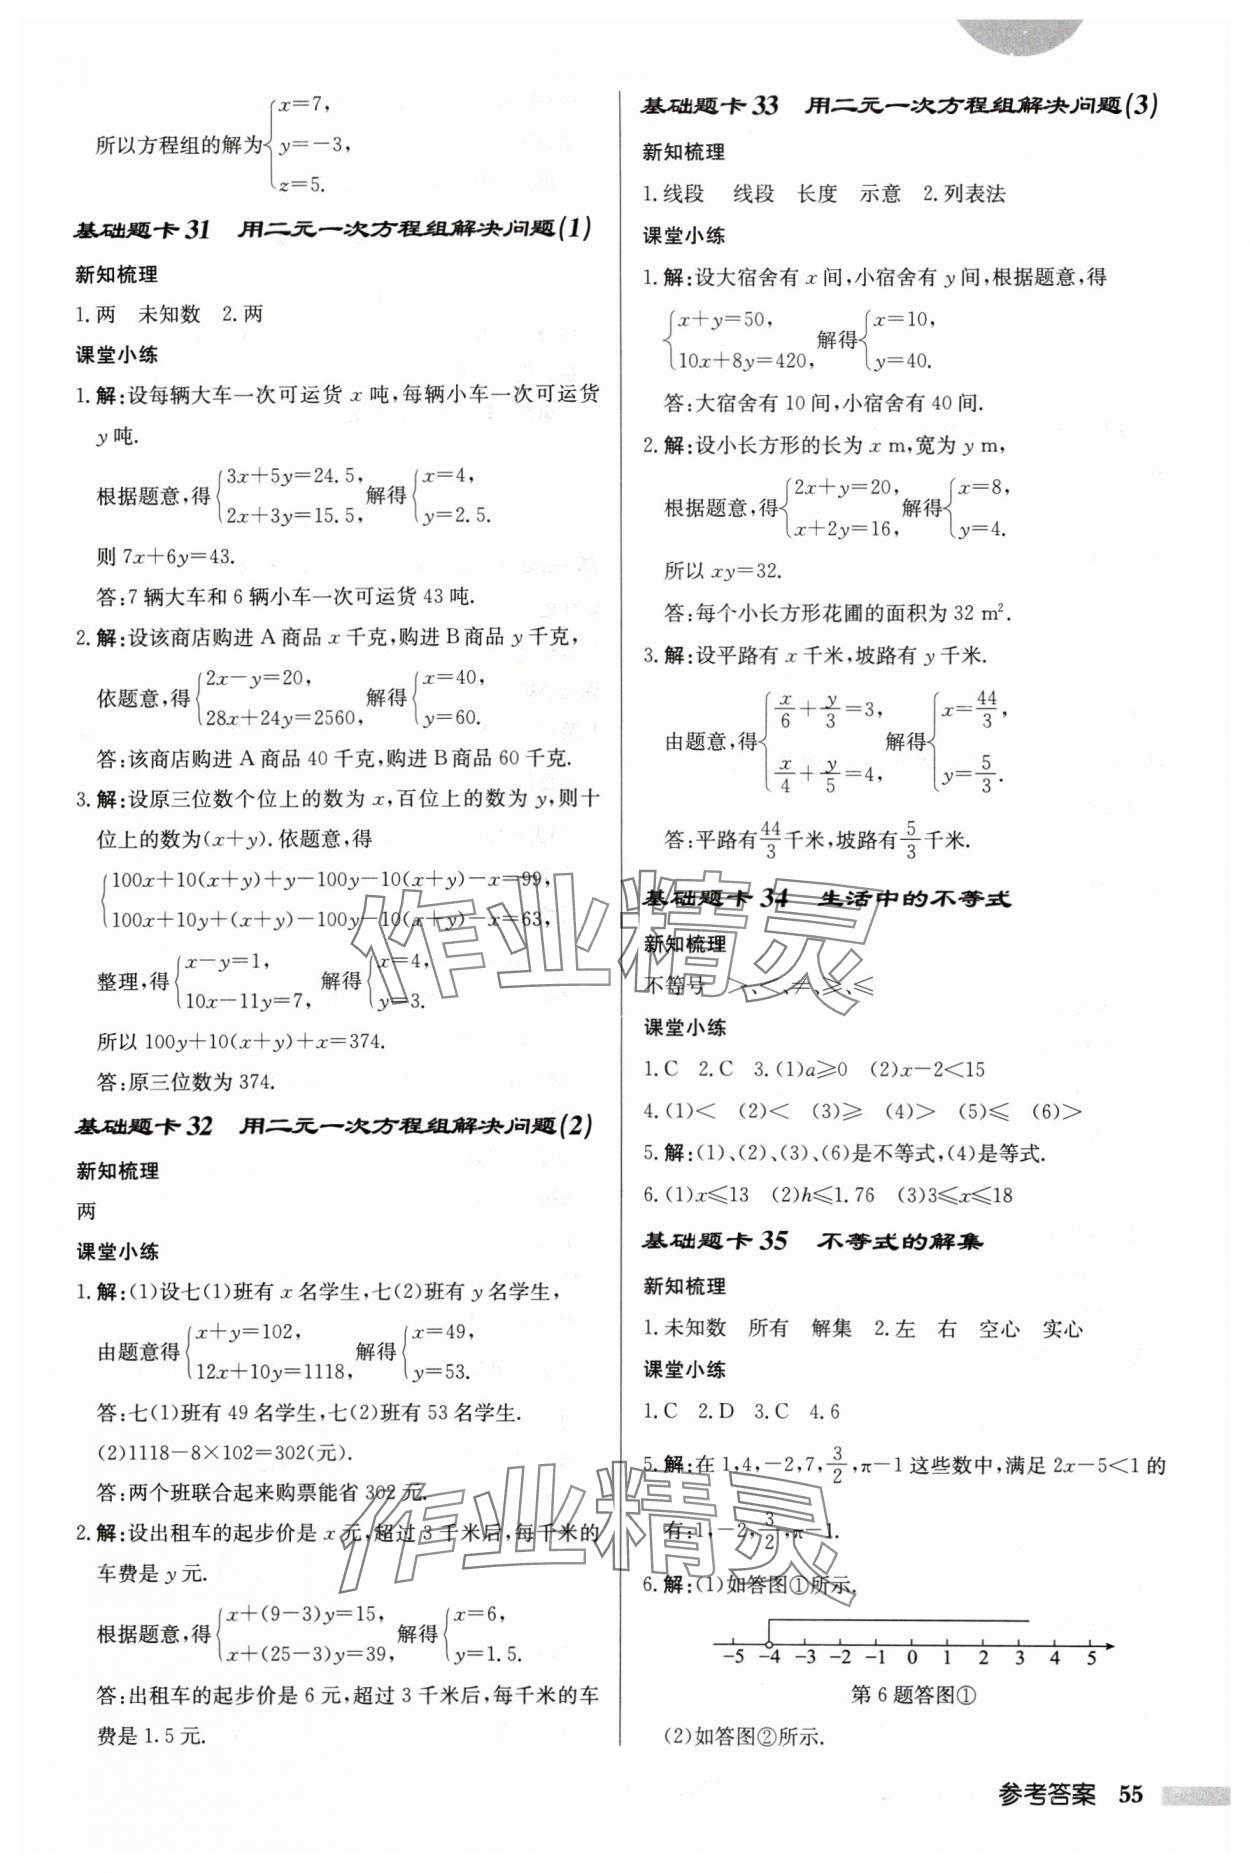 所以方程组的解为{x=7, y=-3, z=5.
基础题卡 31 用二元一次方程组解决问题(1)
新知梳理
1.两 未知数 2.两
课堂小练
1.解:设每辆大车一次可运货 x 吨,每辆小车一次可运货
y 吨.
根据题意,得{3x+5y=24.5, 2x+3y=15.5, 解得{x=4, y=2.5.
则 7x+6y=43.
答:7 辆大车和 6 辆小车一次可运货 43 吨.
2.解:设该商店购进 A 商品 x 千克,购进 B 商品 y 千克,
依题意,得{2x-y=20, 28x+24y=2560, 解得{x=40, y=60.
答:该商店购进 A 商品 40 千克,购进 B 商品 60 千克.
3.解:设原三位数个位上的数为 x,百位上的数为 y,则十
位上的数为(x+y).依题意,得
{100x+10(x+y)+y-100y-10(x+y)-x=99,
100x+10y+(x+y)-100y-10(x+y)-x=63,
整理,得{x-y=1, 10x-11y=7, 解得{x=4, y=3.
所以 100y+10(x+y)+x=374.
答:原三位数为 374.
基础题卡 32 用二元一次方程组解决问题(2)
新知梳理
两
课堂小练
1.解:(1)设七(1)班有 x 名学生,七(2)班有 y 名学生,
由题意得{x+y=102, 12x+10y=1118, 解得{x=49, y=53.
答:七(1)班有 49 名学生,七(2)班有 53 名学生.
(2)1118-8×102=302(元).
答:两个班联合起来购票能省 302 元.
2.解:设出租车的起步价是 x 元,超过 3 千米后,每千米的
车费是 y 元.
根据题意,得{x+(9-3)y=15, x+(25-3)y=39, 解得{x=6, y=1.5.
答:出租车的起步价是 6 元,超过 3 千米后,每千米的车
费是 1.5 元.
基础题卡 33 用二元一次方程组解决问题(3)
新知梳理
1.线段 线段 长度 示意 2.列表法
课堂小练
1.解:设大宿舍有 x 间,小宿舍有 y 间,根据题意,得
{x+y=50, 10x+8y=420, 解得{x=10, y=40.
答:大宿舍有 10 间,小宿舍有 40 间.
2.解:设小长方形的长为 x m,宽为 y m,
根据题意,得{2x+y=20, x+2y=16, 解得{x=8, y=4.
所以 xy=32.
答:每个小长方形花圃的面积为 32 m².
3.解:设平路有 x 千米,坡路有 y 千米.
由题意,得{x/6+y/3=3, x/4+y/5=4, 解得{x=44/3, y=5/3.
答:平路有44/3千米,坡路有5/3千米.
基础题卡 34 生活中的不等式
新知梳理
不等号 >、<、≠、≥、≤
课堂小练
1.C 2.C 3.(1)a≥0 (2)x-2<15
4.(1)< (2)< (3)≥ (4)> (5)≤ (6)>
5.解:(1)、(2)、(3)、(6)是不等式,(4)是等式.
6.(1)x≤13 (2)h≤1.76 (3)3≤x≤18
基础题卡 35 不等式的解集
新知梳理
1.未知数 所有 解集 2.左 右 空心 实心
课堂小练
1.C 2.D 3.C 4.6
5.解:在 1,4,-2,7,3/2,π-1 这些数中,满足 2x-5<1 的
有:1,-2,3/2,π-1.
6.解:(1)如答图①所示.
-5 -4 -3 -2 -1 0 1 2 3 4 5
第 6 题答图①
(2)如答图②所示.
参考答案 55
作业精灵
作业精灵